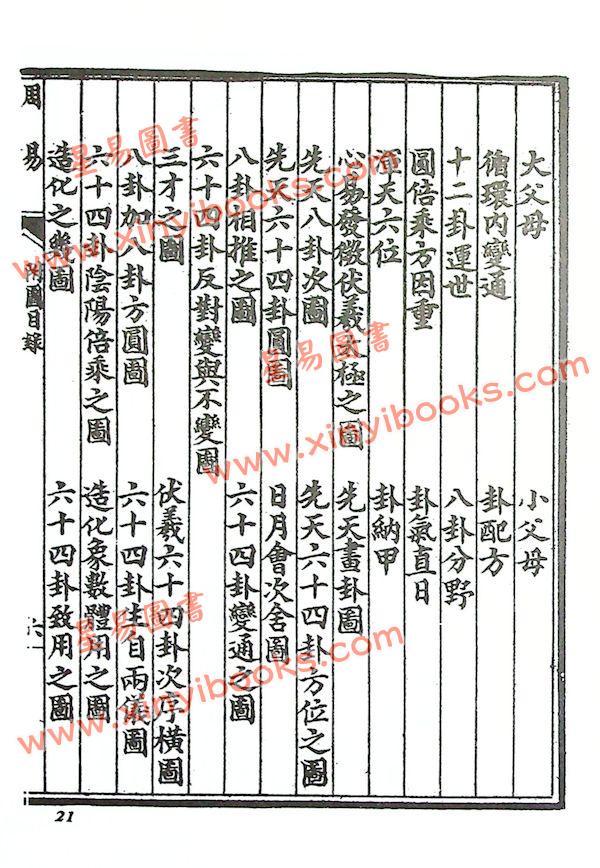 大父母　小父母
循環內變通　卦配方
十二卦運世　八卦分野
圓倍乘方因重　卦氣直日
渾天六位　卦納甲
心易發微伏羲太極之圖　先天畫卦圖
先天八卦次圖　先天六十四卦方位之圖
先天六十四卦圓圖　日月會次舍圖
八卦相推之圖　六十四卦變通之圖
六十四卦反對變與不變圖
三才之圖　伏羲六十四卦次序橫圖
八卦加八卦方圓圖　六十四卦生自兩儀圖
六十四卦陰陽倍乘之圖　造化象數體用之圖
造化之幾圖　六十四卦致用之圖
周易　附圖目錄
21
星易圖書
www.xinyibooks.com
星易圖書
www.xinyibooks.com
星易圖書
www.xinyibooks.com